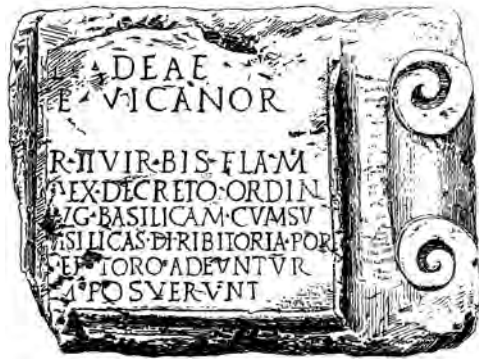 DEAE
VICANOR
R·IIVIR·BIS·FLAM
EX·DECRETO·ORDIN
VG·BASILICAM·CVMSV
SILICAS·DIRIBITORIA·POR
ET·FORO·ADEVNTVR
POSVERVNT